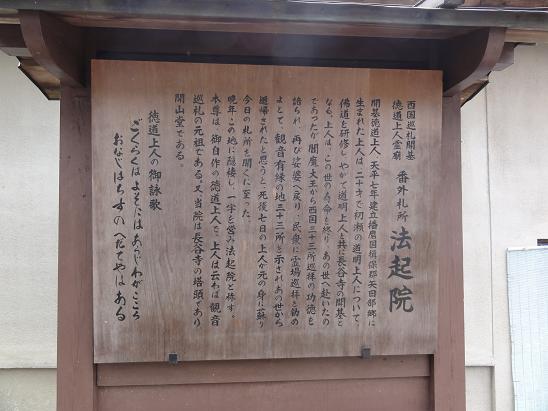 西国巡礼開基
徳道上人霊廟 番外札所 法起院
開基徳道上人、天平七年建立播磨国揖保郡矢田部郷に
生まれた上人は、二十才で初瀬の道明上人について
佛道を研修し、やがて道明上人と共に長谷寺の開基と
なる。上人は、この世の寿命を終り、あの世へ赴いたの
であったが、閻魔大王から西国三十三所巡拝の功徳を
語られ、再び娑婆へ戻り、民衆に霊場巡拝を勧め
よとて、観音有縁の地三十三所を示されあの世から
追帰されたと思うと、死後七日の上人が元の身に蘇り
今日の札所を開くに至った。
晩年、この地に隠棲し、一宇を営み法起院と称す。
本尊は、御自作の徳道上人で、上人は云わば観音
巡礼の元祖である。又当院は長谷寺の塔頭であり
開山堂である。
徳道上人の御詠歌
ごくらくはよそにはあらじわがこころ
おなじはちすのへだてやはある